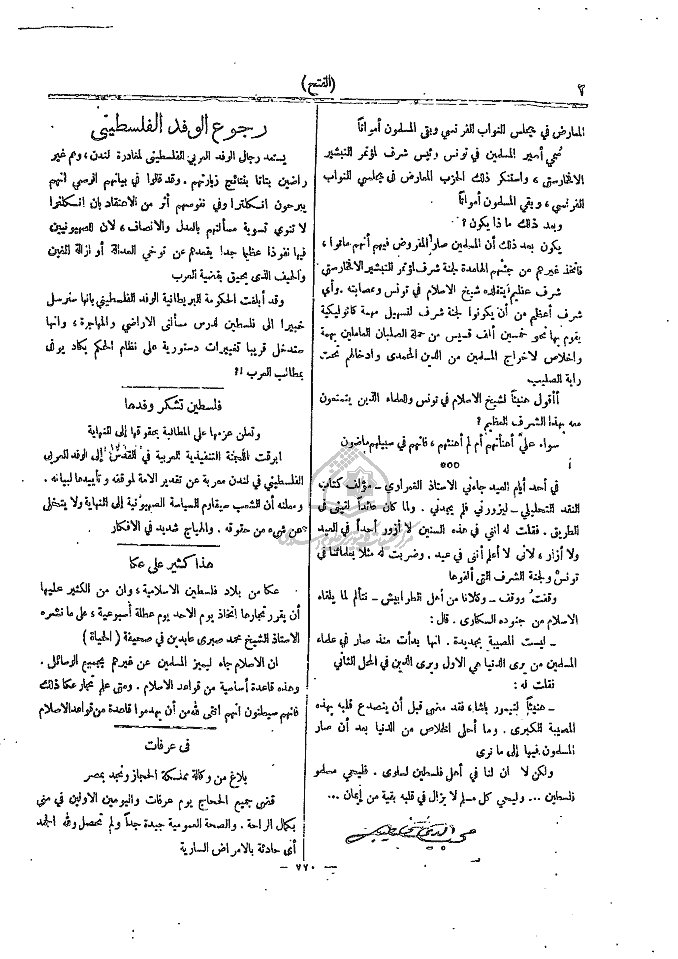 ٢
(الفتح)
المعارض في مجلس للنواب الفرنسي وبقى المسلمون أمواتاً
نُحي أمير المسلمين في تونس ورئيس شرف لمؤتمر التبشير
الافخارستي ، واستنكر ذلك الحزب المعارض في مجلس النواب
الفرنسي ، وبقي المسلمون أمواتاً
وبعد ذلك ماذا يكون ؟
يكون بعد ذلك أن المسلمين صار المفروض فيهم أنهم ماتوا ،
فاتخذ غيرهم من جثثهم الهامدة لجنة شرف لمؤتمر للتبشير الافخارستي
شرف عظيم يتقلده شيخ الاسلام في تونس وعصابته . وأي
شرف أعظم من أن يكونوا لجنة شرف لتسهيل مهمة كاثوليكية
يقوم بها نحو خمسين ألف قسيس من حملة الصلبان العاملين بهمة
وإخلاص لاخراج المسلمين من الدين المحمدى وادخالهم تحت
راية الصليب
أأقول هنيئاً لشيخ الاسلام في تونس والعلماء الذين يتمتعون
معه بهذا الشرف العظيم ؟
سواء عليّ أهنأتهم أم لم أهنئهم ، فانهم في سبيلهم ماضون
٠٠٠
في أحد أيام العيد جاءني الاستاذ الغمراوي - مؤلف كتاب
النقد التحليلي - ليزورني فلم يجدني . ولما كان عائداً لقيني في
الطريق . فقلت له انني في هذه السنين لا أزور أحداً في العيد
ولا أزار ، لاني لا أعلم أنني في عيد . وضربت له مثلا بعلمائنا في
تونس ولجنة الشرف التي ألفوها
وقفتُ ووقف - وكلانا من أهل الطرابيش - نتألم لما يلقاه
الاسلام من جنوده السكارى . قال :
- ليست المصيبة بجديدة . انها بدأت منذ صار في علماء
المسلمين من يرى الدنيا هي الاول ويرى الدين في المحل الثاني
فقلت له :
- هنيئاً لتيمور باشا، فقد مضى قبل أن ينصدع قلبه بهذه
المصيبة الكبرى . وما أحلى الخلاص من الدنيا بعد أن صار
المسلمون فيها إلى ما نرى
ولكن لا ان لنا في أهل فلسطين لسلوى . فليحي مسلمو
فلسطين ... وليحي كل مسلم لا يزال في قلبه بقية من إيمان ...
محب الدين الخطيب
رجوع الوفد الفلسطيني
يستعد رجال الوفد العربي الفلسطيني لمغادرة لندن ، وهم غير
راضين بتاتا بنتائج زيارتهم . وقد قالوا في بيانهم الرسمي انهم
يبرحون انكلترا وفي نفوسهم أثر من الاعتقاد بان انكلترا
لا تنوي تسوية مسألتهم بالعدل والانصاف ، لان للصهيونيين
فيها نفوذا عظيما جدا يقعدهم عن توخي العدالة أو ازالة الغبن
والحيف الذى يحيق بقضية العرب
وقد أبلغت الحكومة البريطانية الوفد الفلسطيني بانها سترسل
خبيرا الى فلسطين لدرس مسألتى الاراضي والمهاجرة ، وانها
ستدخل قريبا تغييرات دستورية على نظام الحكم يكاد يوفى
بمطالب العرب !؟
فلسطين تشكر وفدها
وتعلن عزمها على المطالبة بحقوقها إلى النهاية
ابرقت اللجنة التنفيذية العربية في القدس إلى الوفد العربي
الفلسطيني في لندن معربة عن تقدير الامة لموقفه وتأييدها لبيانه .
ومعلنه أن الشعب سيقاوم السياسة الصهيونية إلى النهاية ولا يتخلى
عن شيء من حقوقه . والهياج شديد في الافكار
هذا كثير على عكا
عكا من بلاد فلسطين الاسلامية ، وان من الكثير عليها
أن يقرر تجارها إتخاذ يوم الاحد يوم عطلة أسبوعية ، على ما نشره
الاستاذ الشيخ محمد صبرى عابدين في صحيفة ( الحياة )
ان الاسلام جاء ليميز المسلمين عن غيرهم بجميع الوسائل .
وهذه قاعدة أساسية من قواعد الاسلام . ومتى علم تجار عكا ذلك
فانهم سيعلنون انهم أتقى لله من أن يهدموا قاعدة من قواعد الاسلام
في عرفات
بلاغ من وكالة مملكة الحجاز ونجد بمصر
قضى جميع الحجاج يوم عرفات واليومين الاولين في منى
بكمال الراحة . والصحة العمومية جيدة جداً ولم تحصل ولله الحمد
أى حادثة بالامراض السارية
- ٧٧٠ -